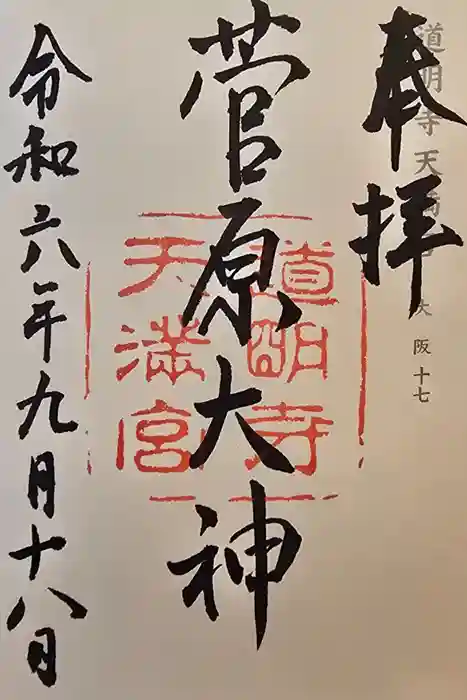 奉拝
道明寺天満宮
大阪十七
菅原大神
道明寺
天満宮
令和六年九月十八日